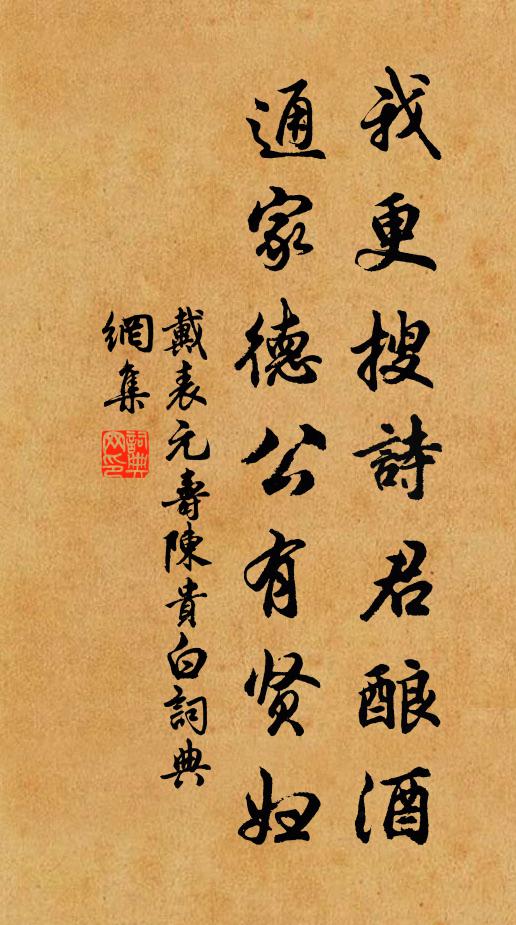 我更搜詩君酿酒
通家德公有贤妇
戴表元壽陳貴白詞典
網集
詞典网印